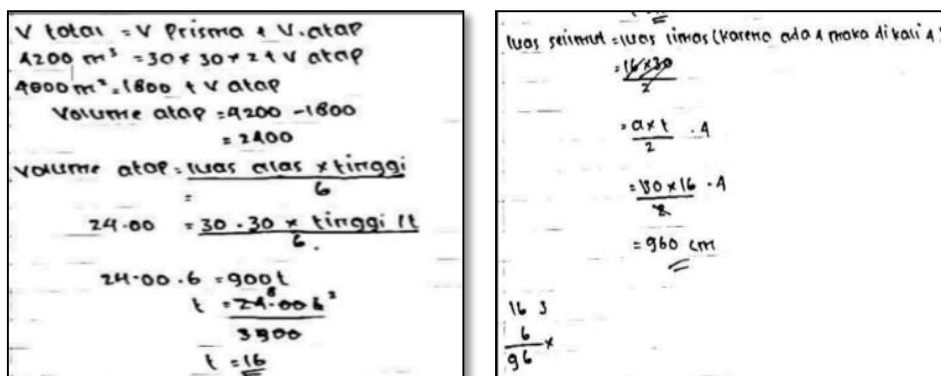 V total = V Prisma + V. atap
4200 m³ = 30 × 30 × 2 + V atap
4000 m² = 1800 + V atap
Volume atap = 4200 - 1800
= 2400
Volume atap = luas alas × tinggi
6
=
24.00 = 30 . 30 × tinggi / t
6.
24.00 . 6 = 900 t
t = 24.00 6
3900
t = 16
luas selimut = luas limas (karena ada 4 maka di kali 4)
= 16 × 30
2
= a × t . 4
2
= 30 × 16 . 4
2
= 960 cm
16
6
×
96